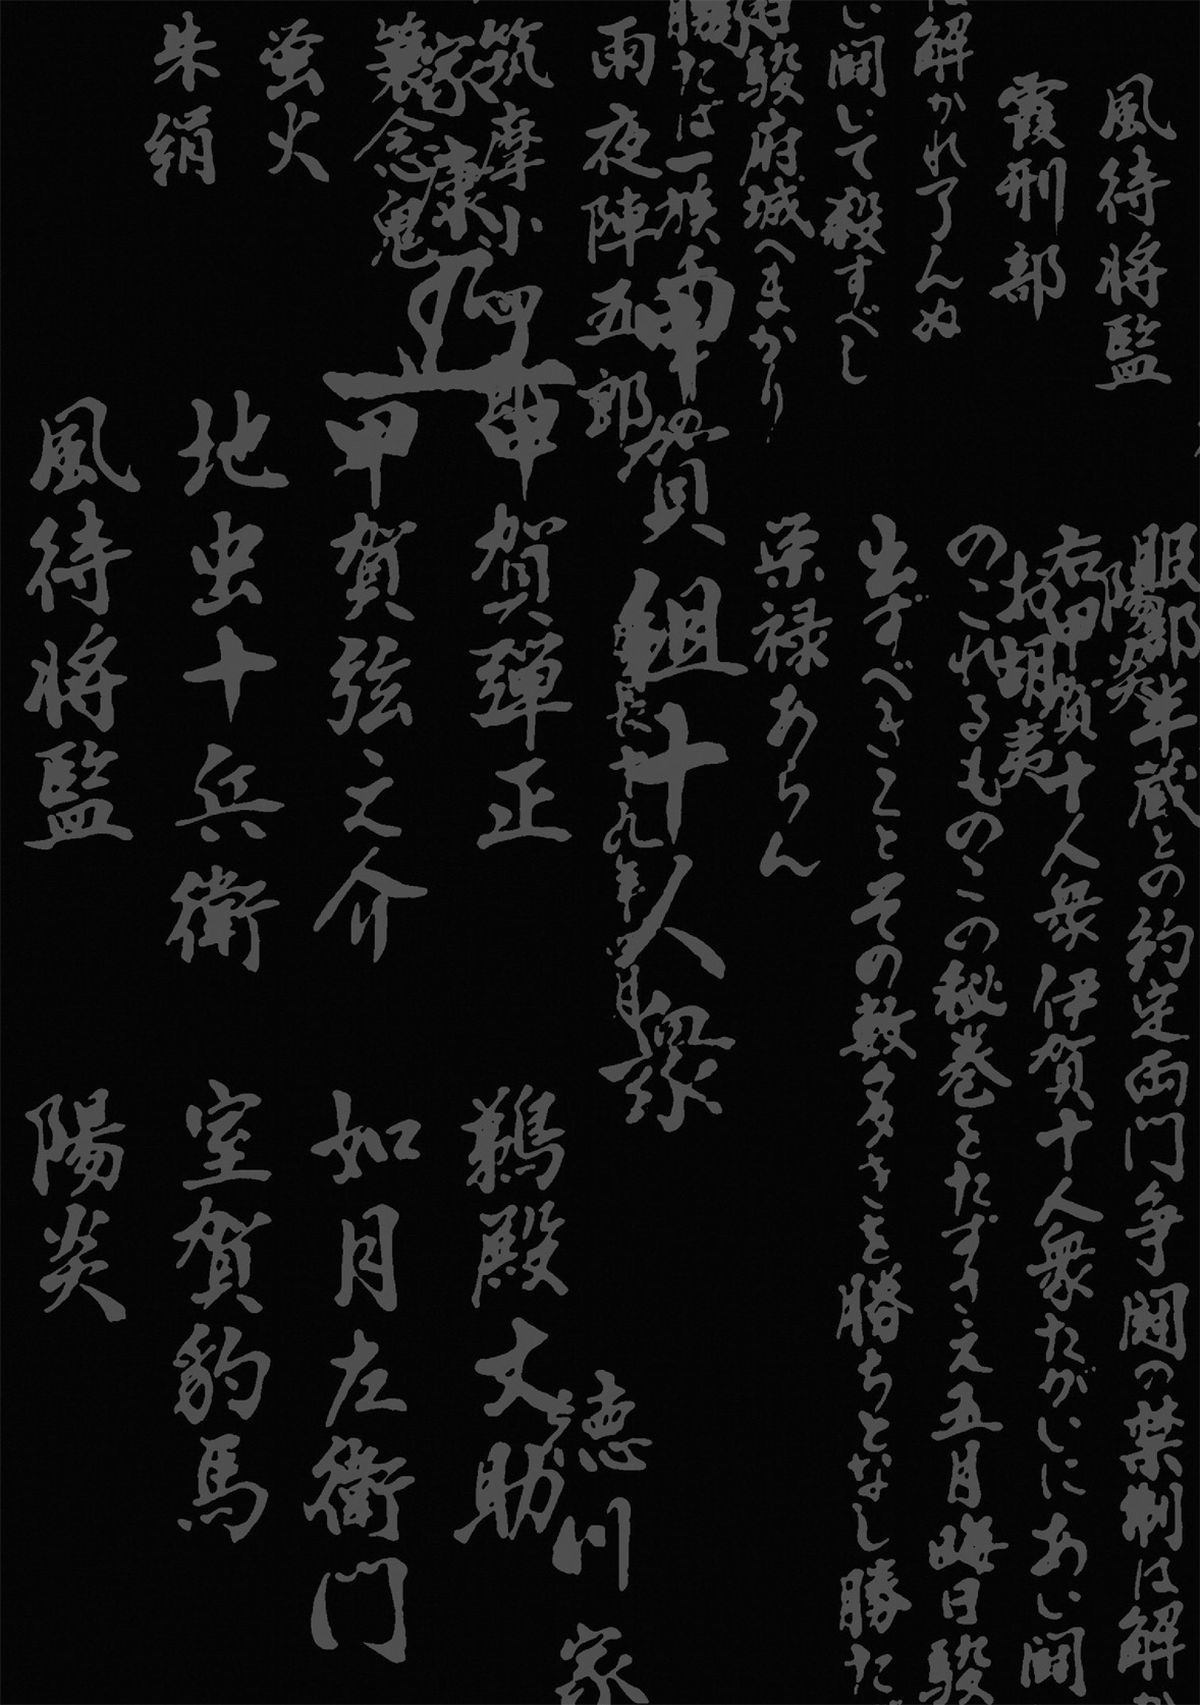 風待将監
霞刑部
に解かれ了んぬ
い闘いて殺すべし
駿府城へまかり
勝たば一族
雨夜陣五郎
筑摩小四郎
家康
蓑念鬼
蛍火
朱絹
服部半蔵との約定両門争闘の禁制は解か
陽炎
右甲賀十人衆伊賀十人衆たがいにあい闘
お胡夷
のこれるものこの秘巻をたずさえ五月晦日駿
出ずべきことその数多きを勝ちとなし勝た
栄禄あらん
甲賀組十人衆
慶長十九年四月
徳川家
甲賀弾正
甲賀弦之介
地虫十兵衛
風待将監
鵜殿丈助
如月左衛門
室賀豹馬
陽炎